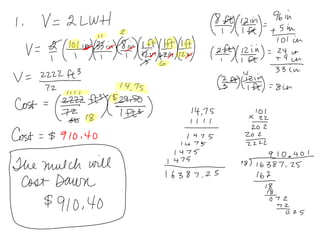 1. V = 2LWH
V = (2/1)(101 in/1)(33 in/1)(8 in/1)(1 ft/12 in)(1 ft/12 in)(1 ft/12 in)
11 2
6
V = 2222 ft³/72
Cost = (2222 ft³/72)($29.50/1 ft³)
1111 14.75
18
Cost = $910.40
The mulch will
cost Dawn
$910.40
(8 ft/1)(12 in/1 ft) = 96 in
+ 5 in
101 in
(2 ft/1)(12 in/1 ft) = 24 in
+ 9 in
33 in
(2 ft/3)(12 in/1 ft) = 8 in
4
14.75
1111
1475
1475
1475
1475
16387.25
101
× 22
202
202
2222
910.401
18) 16387.25
162
18
18
072
72
025